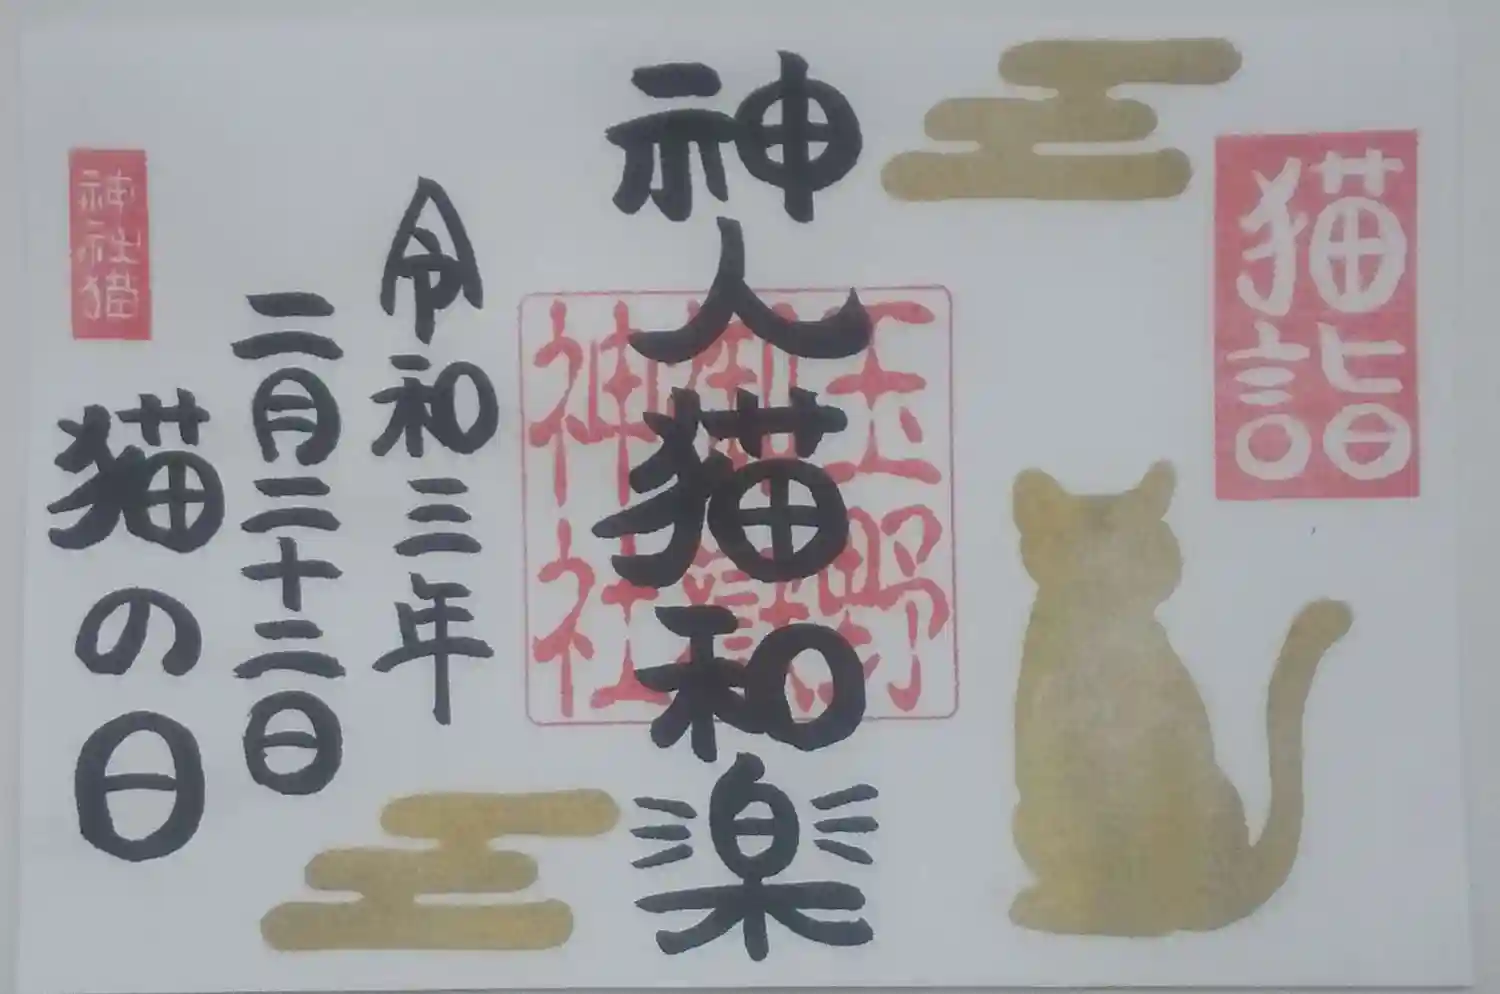 猫詣
神人猫和楽
玉野
御嶽
神社
令和三年
二月二十二日
猫の日
神社猫